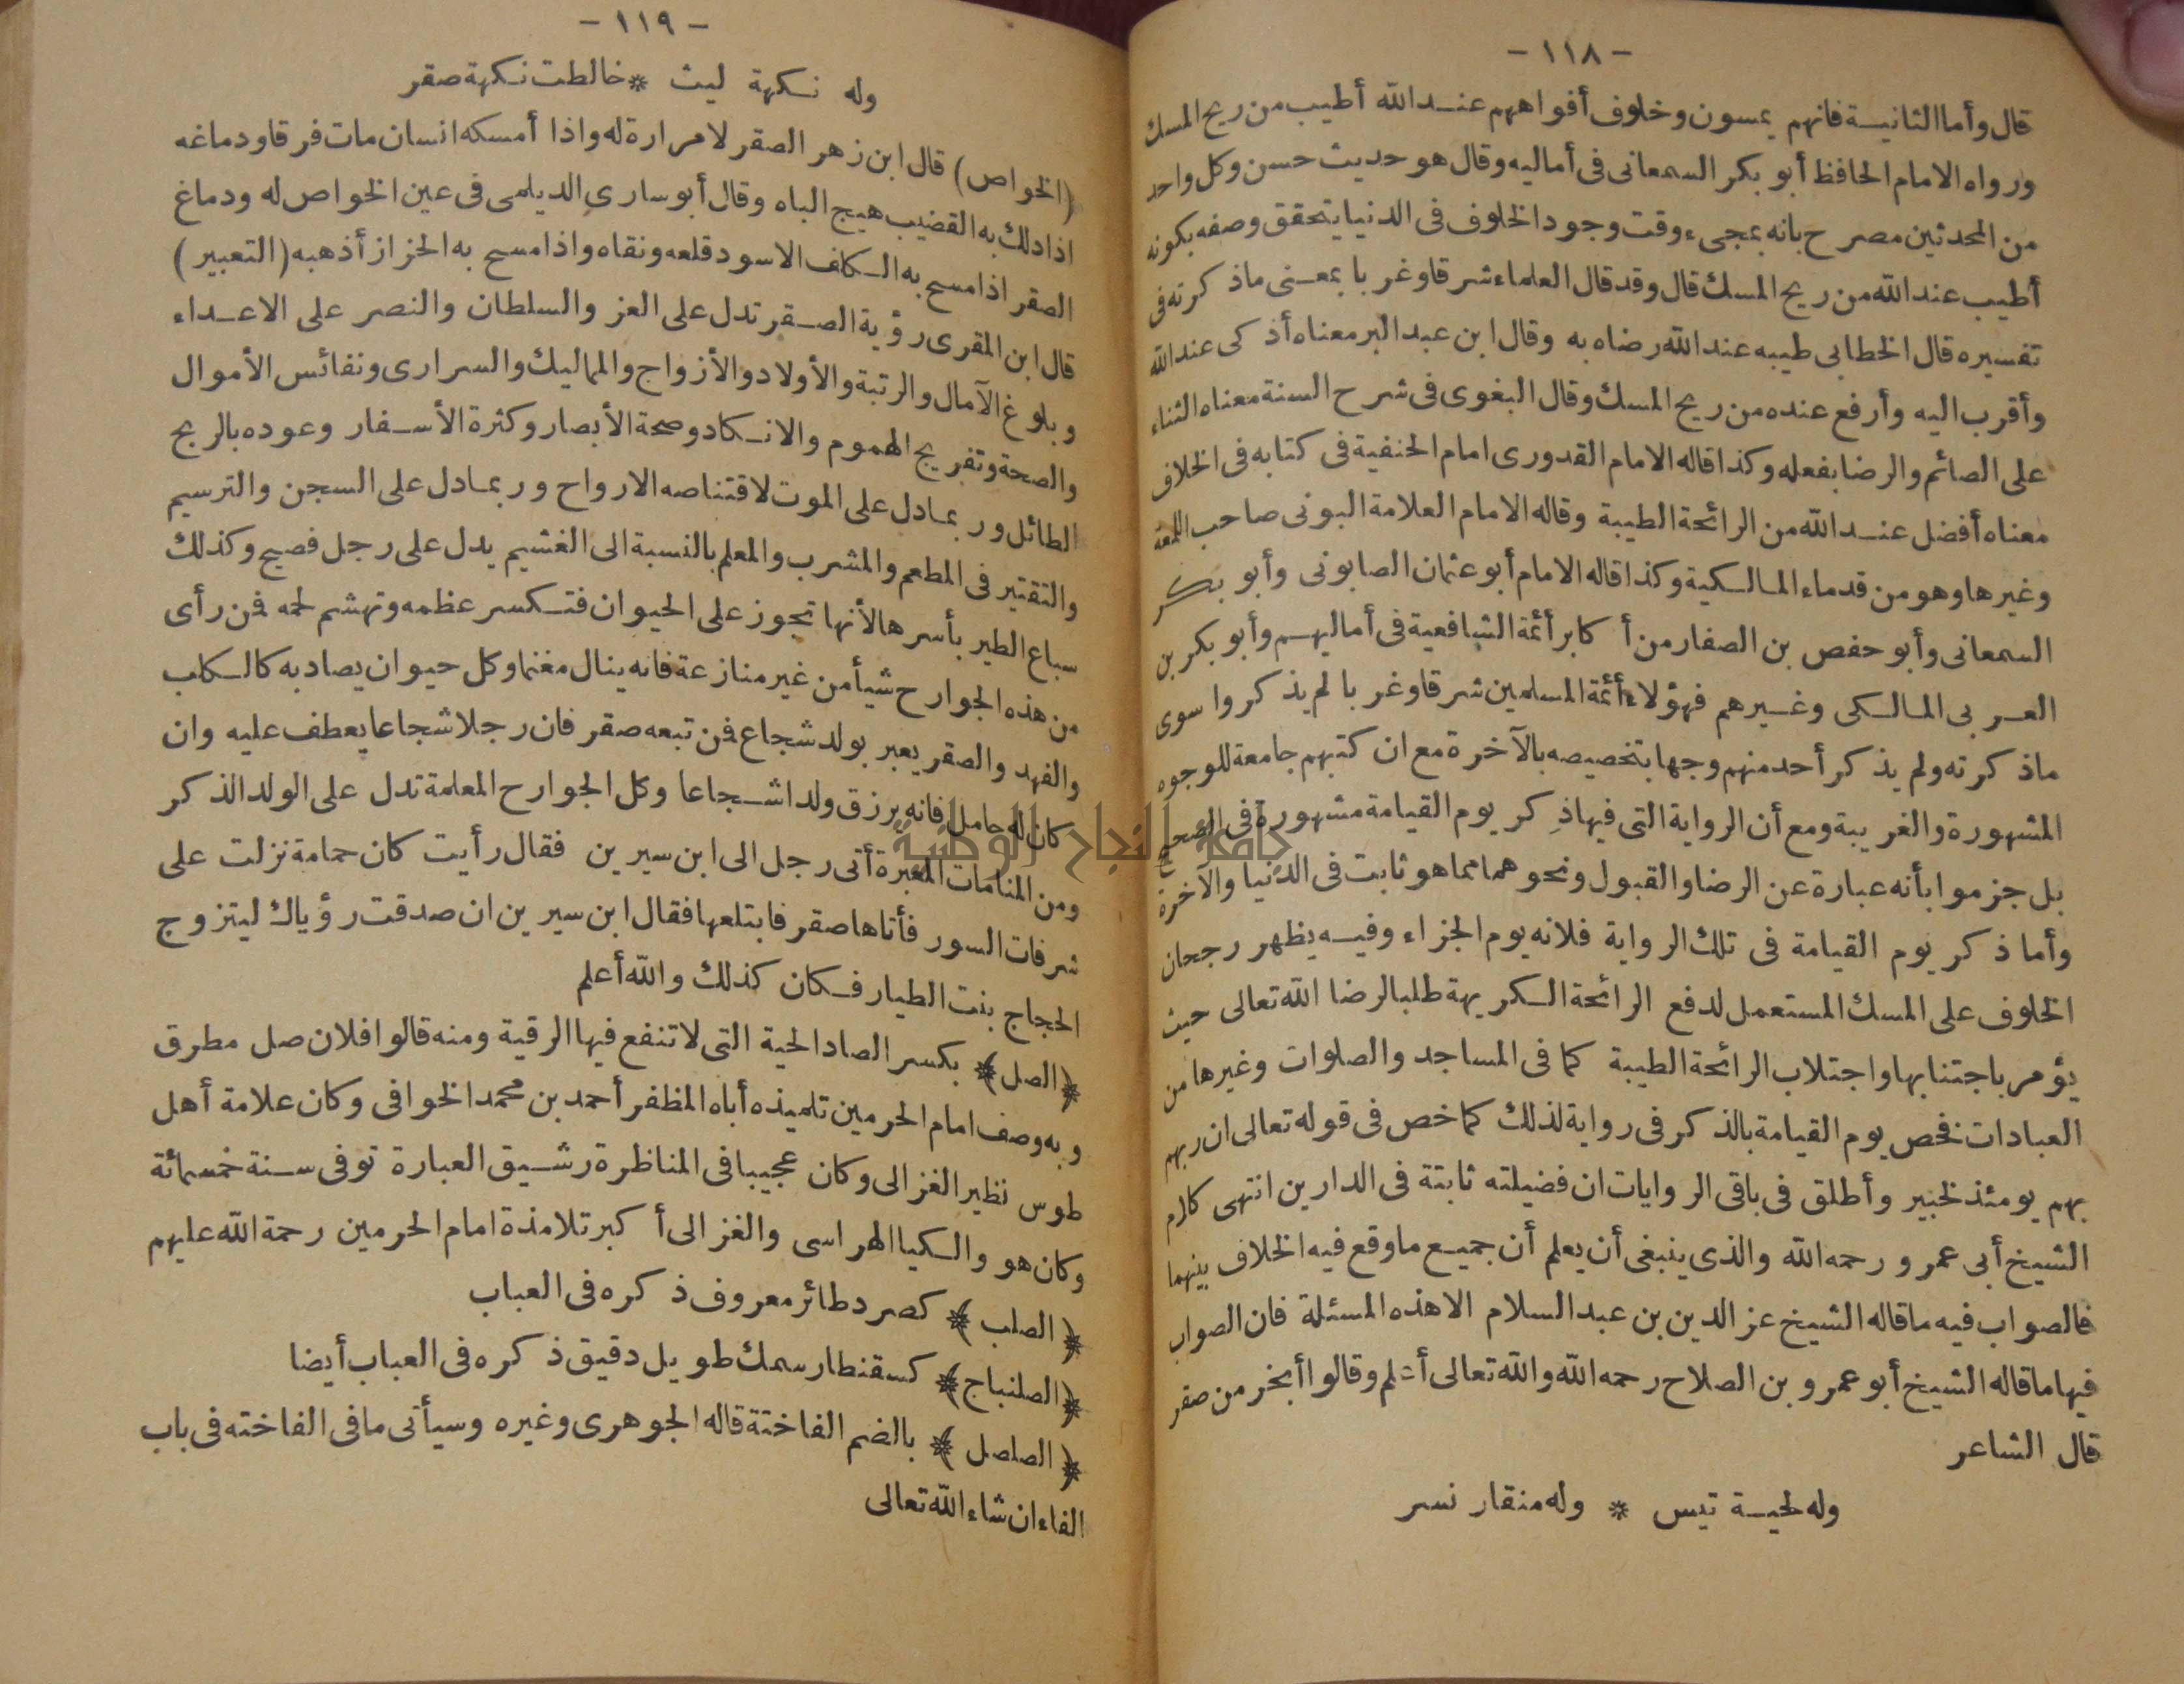 - ١١٨ -
قال وأما الثانية فانهم يمسون وخلوف أفواههم عند الله أطيب من ريح المسك
ورواه الامام الحافظ أبو بكر السمعانى فى أماليه وقال هو حديث حسن وكل واحد
من المحدثين مصرح بانه بمجىء وقت وجود الخلوف فى الدنيا يتحقق وصفه بكونه
أطيب عند الله من ريح المسك قال وقد قال العلماء شرقا وغربا بمعنى ماذكرته فى
تفسيره قال الخطابى طيبه عند الله رضاه به وقال ابن عبد البر معناه أذكى عند الله
وأقرب اليه وأرفع عنده من ريح المسك وقال البغوى فى شرح السنة معناه الثناء
على الصائم والرضا بفعله وكذا قاله الامام القدورى امام الحنفية فى كتابه فى الخلاف
معناه أفضل عند الله من الرائحة الطيبة وقاله الامام العلامة البونى صاحب اللمعة
وغيرها وهو من قدماء المالكية وكذا قاله الامام أبو عثمان الصابونى وأبو بكر
السمعانى وأبو حفص بن الصفار من أكابر أئمة الشافعية فى أماليهم وأبو بكر بن
العربى المالكى وغيرهم فهؤلاء أئمة المسلمين شرقا وغربا لم يذكروا سوى
ماذكرته ولم يذكر أحد منهم وجها بتخصيصه بالآخرة مع ان كتبهم جامعة للوجوه
المشهورة والغريبة ومع أن الرواية التى فيها ذكر يوم القيامة مشهورة فى الصحيح
بل جزموا بأنه عبارة عن الرضا والقبول ونحوهما مما هو ثابت فى الدنيا والآخرة
وأما ذكر يوم القيامة فى تلك الرواية فلانه يوم الجزاء وفيه يظهر رجحان
الخلوف على المسك المستعمل لدفع الرائحة الكريهة طلبا لرضا الله تعالى حيث
يؤمر باجتنابها واجتلاب الرائحة الطيبة كما فى المساجد والصلوات وغيرها من
العبادات فخص يوم القيامة بالذكر فى رواية لذلك كما خص فى قوله تعالى ان ربهم
بهم يومئذ لخبير وأطلق فى باقى الروايات ان فضيلته ثابتة فى الدارين انتهى كلام
الشيخ أبى عمرو رحمه الله والذى ينبغى أن يعلم أن جميع ماوقع فيه الخلاف بينهما
فالصواب فيه ماقاله الشيخ عز الدين بن عبد السلام الا هذه المسئلة فان الصواب
فيها ماقاله الشيخ أبو عمرو بن الصلاح رحمه الله والله تعالى أعلم وقالوا أبخر من صقر
قال الشاعر
وله لحية تيس * وله منقار نسر
- ١١٩ -
وله نكهة ليث * خالطت نكهة صقر
(الخواص) قال ابن زهر الصقر لامرارة له واذا أمسكه انسان مات فرقا ودماغه
اذا دلك به القضيب هيج الباه وقال أبو سارى الديلمى فى عين الخواص له ودماغ
الصقر اذا مسح به الكلف الاسود قلعه ونقاه واذا مسح به الحزاز أذهبه (التعبير)
قال ابن المقرى رؤية الصقر تدل على العز والسلطان والنصر على الاعداء
وبلوغ الآمال والرتبة والأولاد والأزواج والمماليك والسرارى ونفائس الأموال
والصحة وتفريج الهموم والانكاد وصحة الأبصار وكثرة الأسفار وعوده بالربح
الطائل وربما دل على الموت لاقتناصه الارواح وربما دل على السجن والترسيم
والتقتير فى المطعم والمشرب والمعلم بالنسبة الى الغشيم يدل على رجل فصيح وكذلك
سباع الطير بأسرها لأنها تجوز على الحيوان فتكسر عظمه وتهشم لحمه فمن رأى
من هذه الجوارح شيأ من غير منازعة فانه ينال مغنما وكل حيوان يصاد به كالكلب
والفهد والصقر يعبر بولد شجاع فمن تبعه صقر فان رجلا شجاعا يعطف عليه وان
كان له حامل فانه يرزق ولدا شجاعا وكل الجوارح المعلمة تدل على الولد الذكر
ومن المنامات المعبرة أتى رجل الى ابن سيرين فقال رأيت كان حمامة نزلت على
شرفات السور فأتاها صقر فابتلعها فقال ابن سيرين ان صدقت رؤياك ليتزوج
الحجاج بنت الطيار فكان كذلك والله أعلم
﴿الصل﴾ بكسر الصاد الحية التى لا تنفع فيها الرقية ومنه قالوا فلان صل مطرق
وبه وصف امام الحرمين تلميذه أباه المظفر أحمد بن محمد الخوافى وكان علامة أهل
طوس نظير الغزالى وكان عجيبا فى المناظرة رشيق العبارة توفى سنة خمسمائة
وكان هو والكيا الهراسى والغزالى أكبر تلامذة امام الحرمين رحمة الله عليهم
﴿الصلب﴾ كصرد طائر معروف ذكره فى العباب
﴿الصلنباج﴾ كسقنطار سمك طويل دقيق ذكره فى العباب أيضا
﴿الصلصل﴾ بالضم الفاختة قاله الجوهرى وغيره وسيأتى مافى الفاخته فى باب
الفاء ان شاء الله تعالى
جامعة النجاح الوطنية